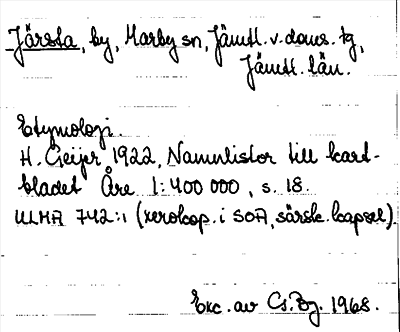 Järsta, by, Marby sn, Jämtl. v. doms. tg,
Jämtl. län.
Etymologi.
H. Geijer 1922, Namnlistor till kart-
bladet Åre 1:400 000, s. 18.
ULMA 742:1 (xerokop. i SOA, särsk. kapsel).
Exc. av Cs. Bg. 1968.